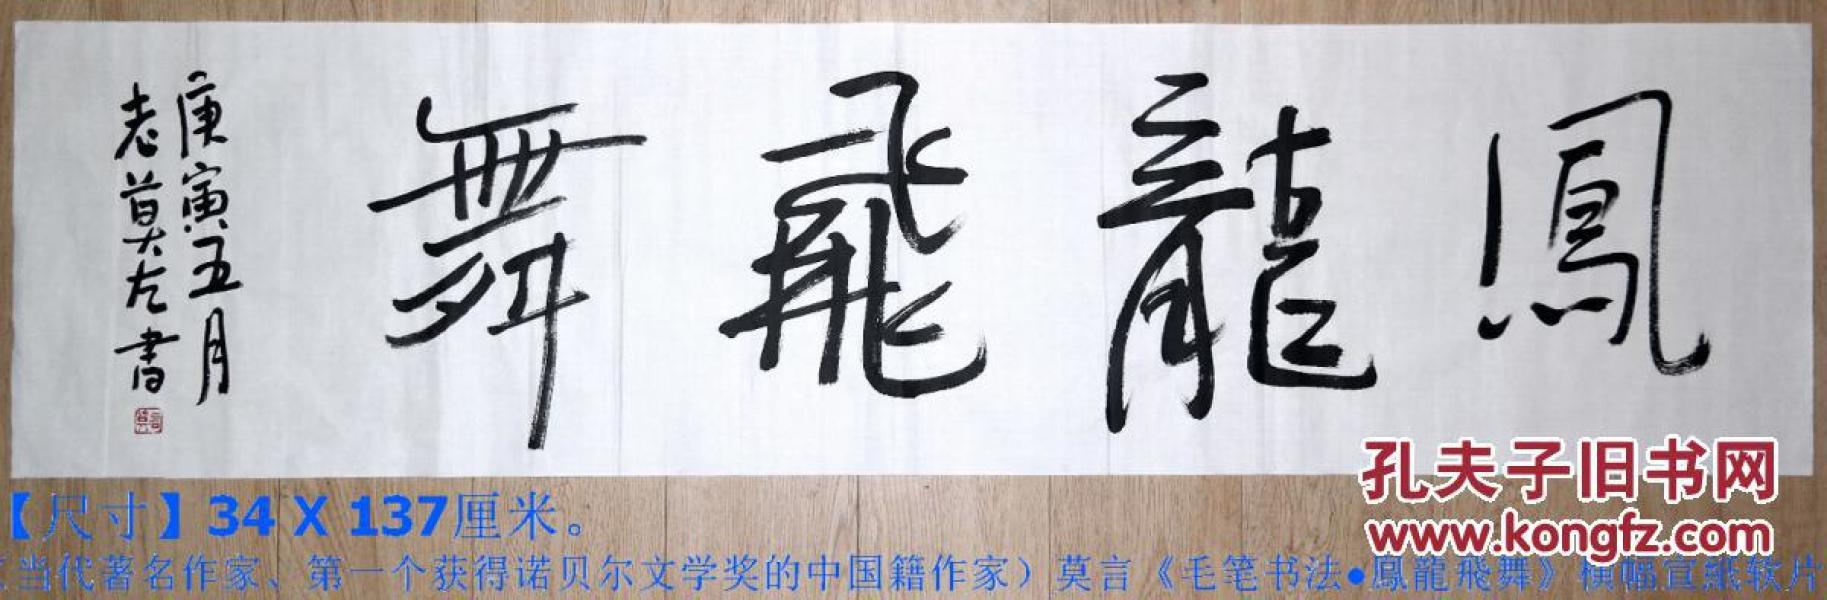 鳳龍飛舞
庚寅五月
老莫左書
孔夫子旧书网
www.kongfz.com
【尺寸】34 X 137厘米。
（当代著名作家、第一个获得诺贝尔文学奖的中国籍作家）莫言《毛笔书法●鳳龍飛舞》横幅宣紙软片